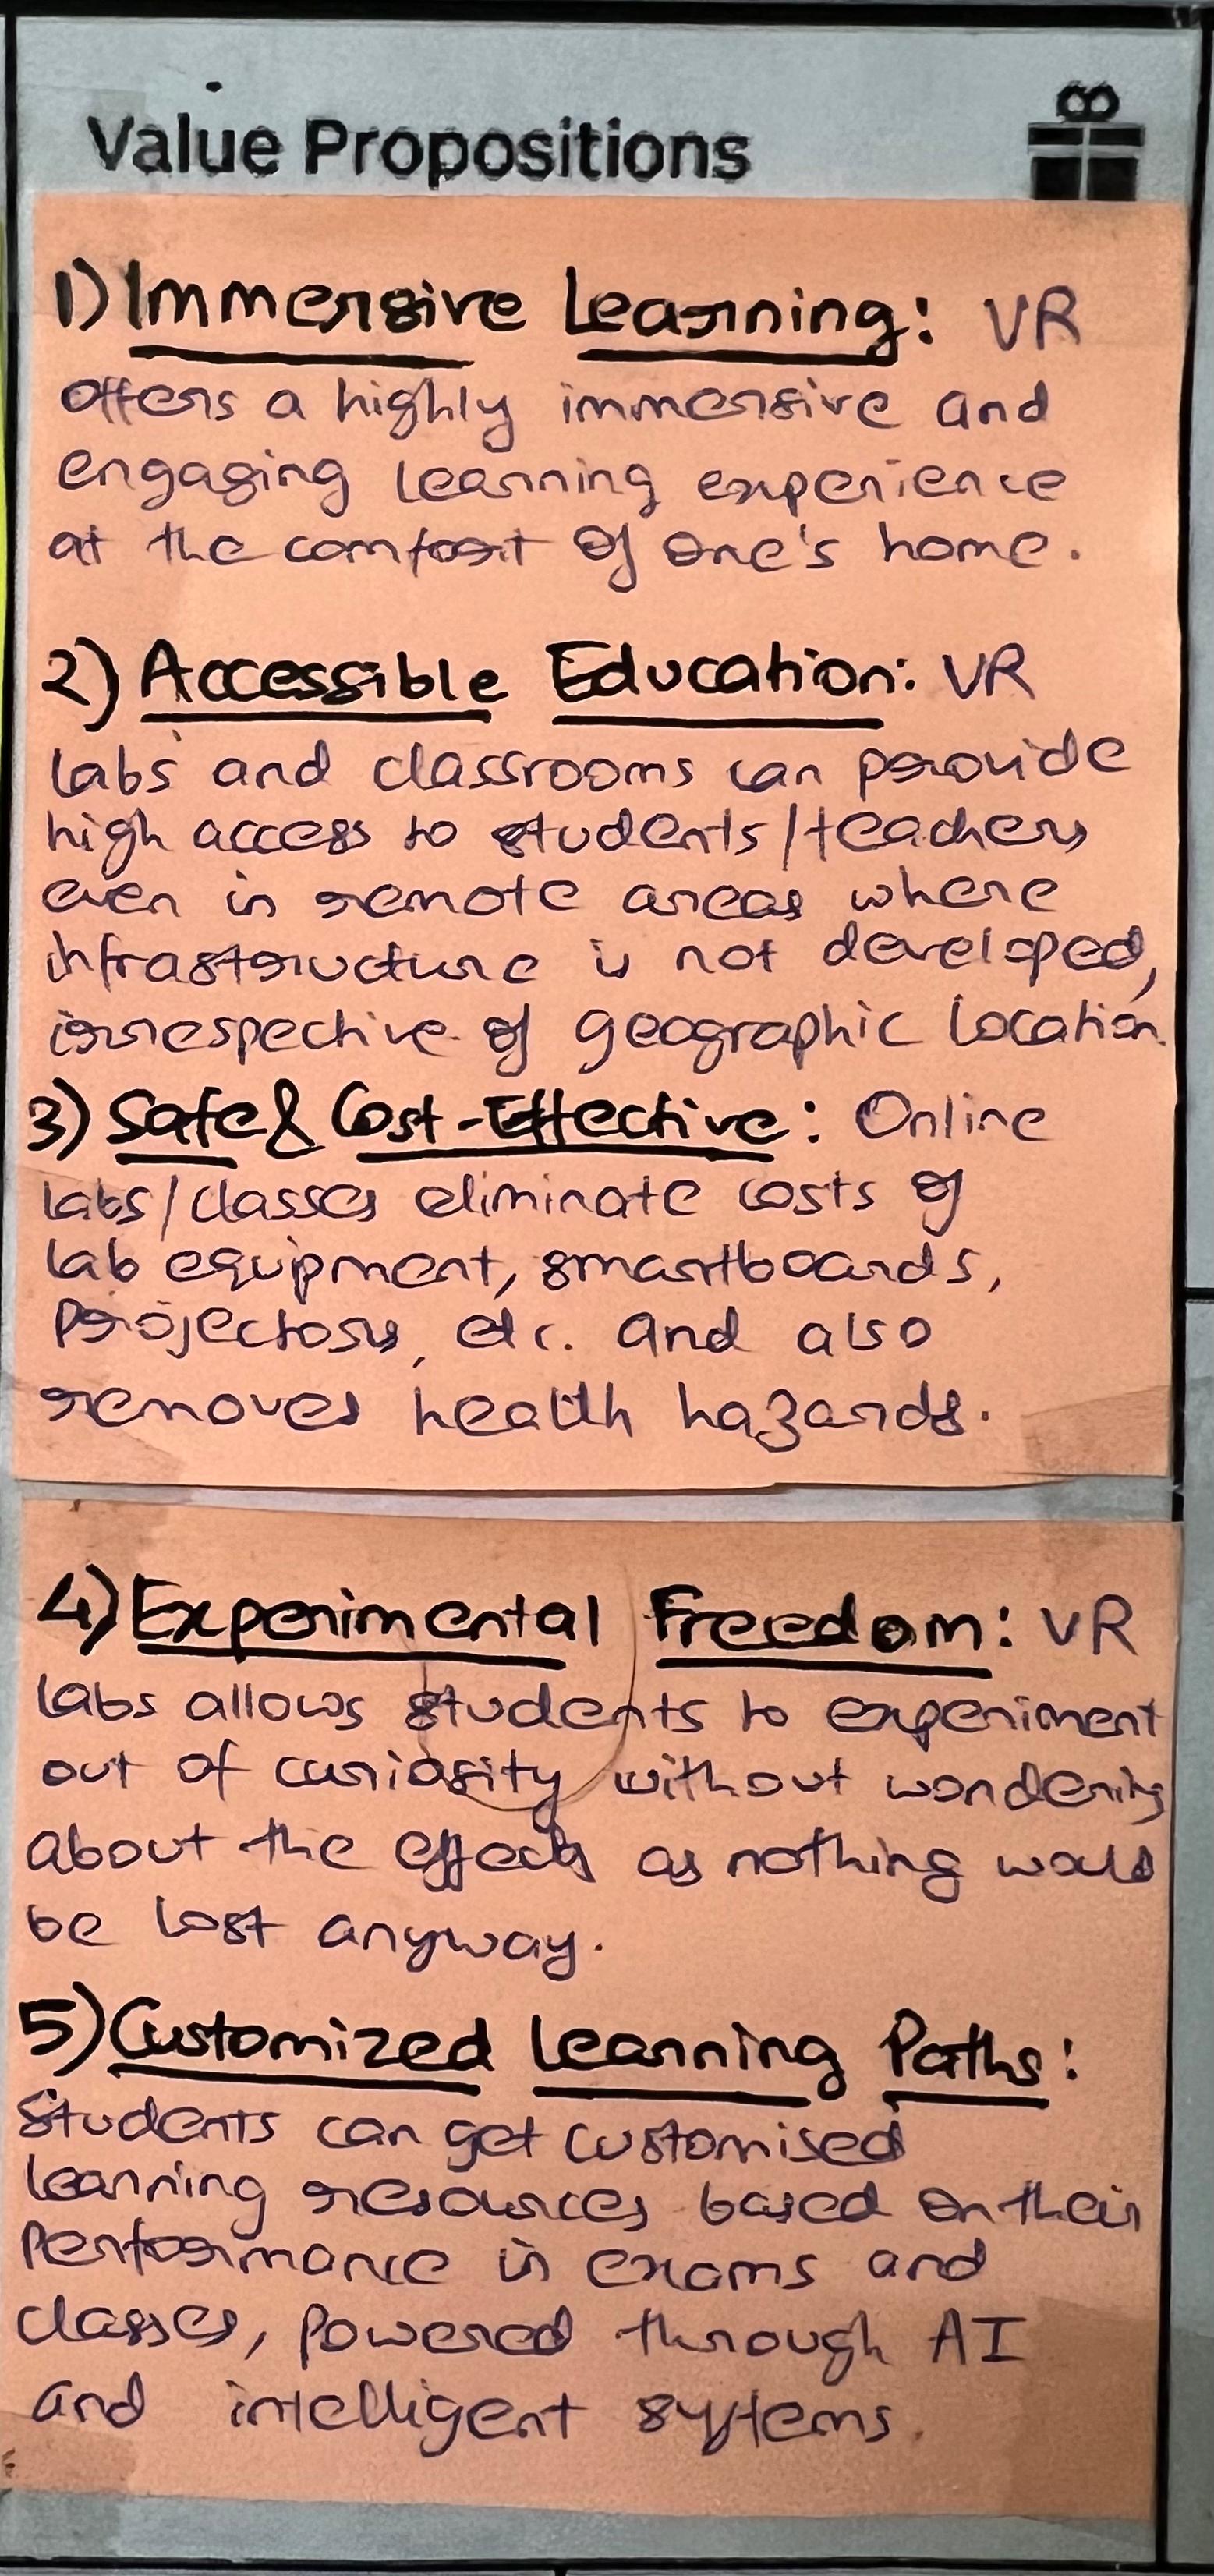 Value Propositions
1) Immersive Learning: VR
offers a highly immersive and
engaging learning experience
at the comfort of one's home.
2) Accessible Education: VR
labs and classrooms can provide
high access to students/teachers
even in remote areas where
infrastructure is not developed,
irrespective of geographic location.
3) Safe & Cost-Effective: Online
labs/classes eliminate costs of
lab equipment, smartboards,
projectors, etc. and also
removes health hazards.
4) Experimental Freedom: VR
labs allows students to experiment
out of curiosity without wondering
about the effects as nothing would
be lost anyway.
5) Customized Learning Paths:
Students can get customised
learning resources based on their
performance in exams and
classes, powered through AI
and intelligent systems.